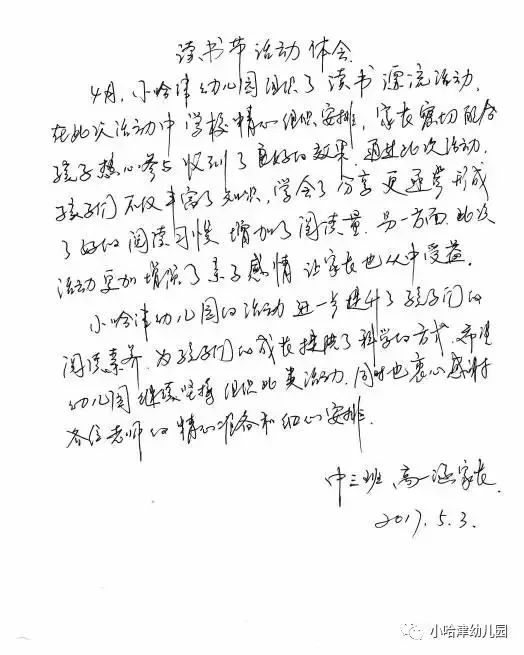 读书节活动体会
4月，小哈津幼儿园组织了读书漂流活动，
在此次活动中学校精心组织安排，家长密切配合
孩子热心参与收到了良好的效果，通过此次活动，
孩子们不仅丰富了知识，学会了分享更逐步形成
了好的阅读习惯增加了阅读量，另一方面，此次
活动更加增强了亲子感情让家长也从中受益。
小哈津幼儿园的活动进一步提升了孩子们的
阅读素养，为孩子们的成长提供了科学的方式，希望
幼儿园继续坚持组织此类活动，同时也衷心感谢
各位老师的精心准备和细心安排。
中三班 高一涵家长
2017.5.3.
小哈津幼儿园